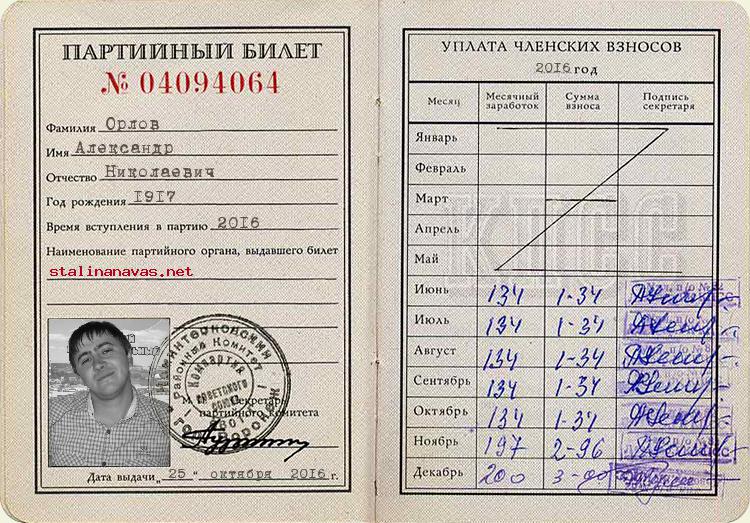 ПАРТИЙНЫЙ БИЛЕТ
№ 04094064
Фамилия Орлов
Имя Александр
Отчество Николаевич
Год рождения 1917
Время вступления в партию 2016
Наименование партийного органа, выдавшего билет
stalinanavas.net
М. П. Секретарь
партийного комитета
Дата выдачи „25" октября 2016 г.
Районный Комитет
Компартия
Советского
Союза
УПЛАТА ЧЛЕНСКИХ ВЗНОСОВ
2016 год
Месяц Месячный заработок Сумма взноса Подпись секретаря
КПСС
Январь
Февраль
Март
Апрель
Май
Июнь 134 1-34
Июль 134 1-34
Август 134 1-34
Сентябрь 134 1-34
Октябрь 134 1-34
Ноябрь 197 2-96
Декабрь 200